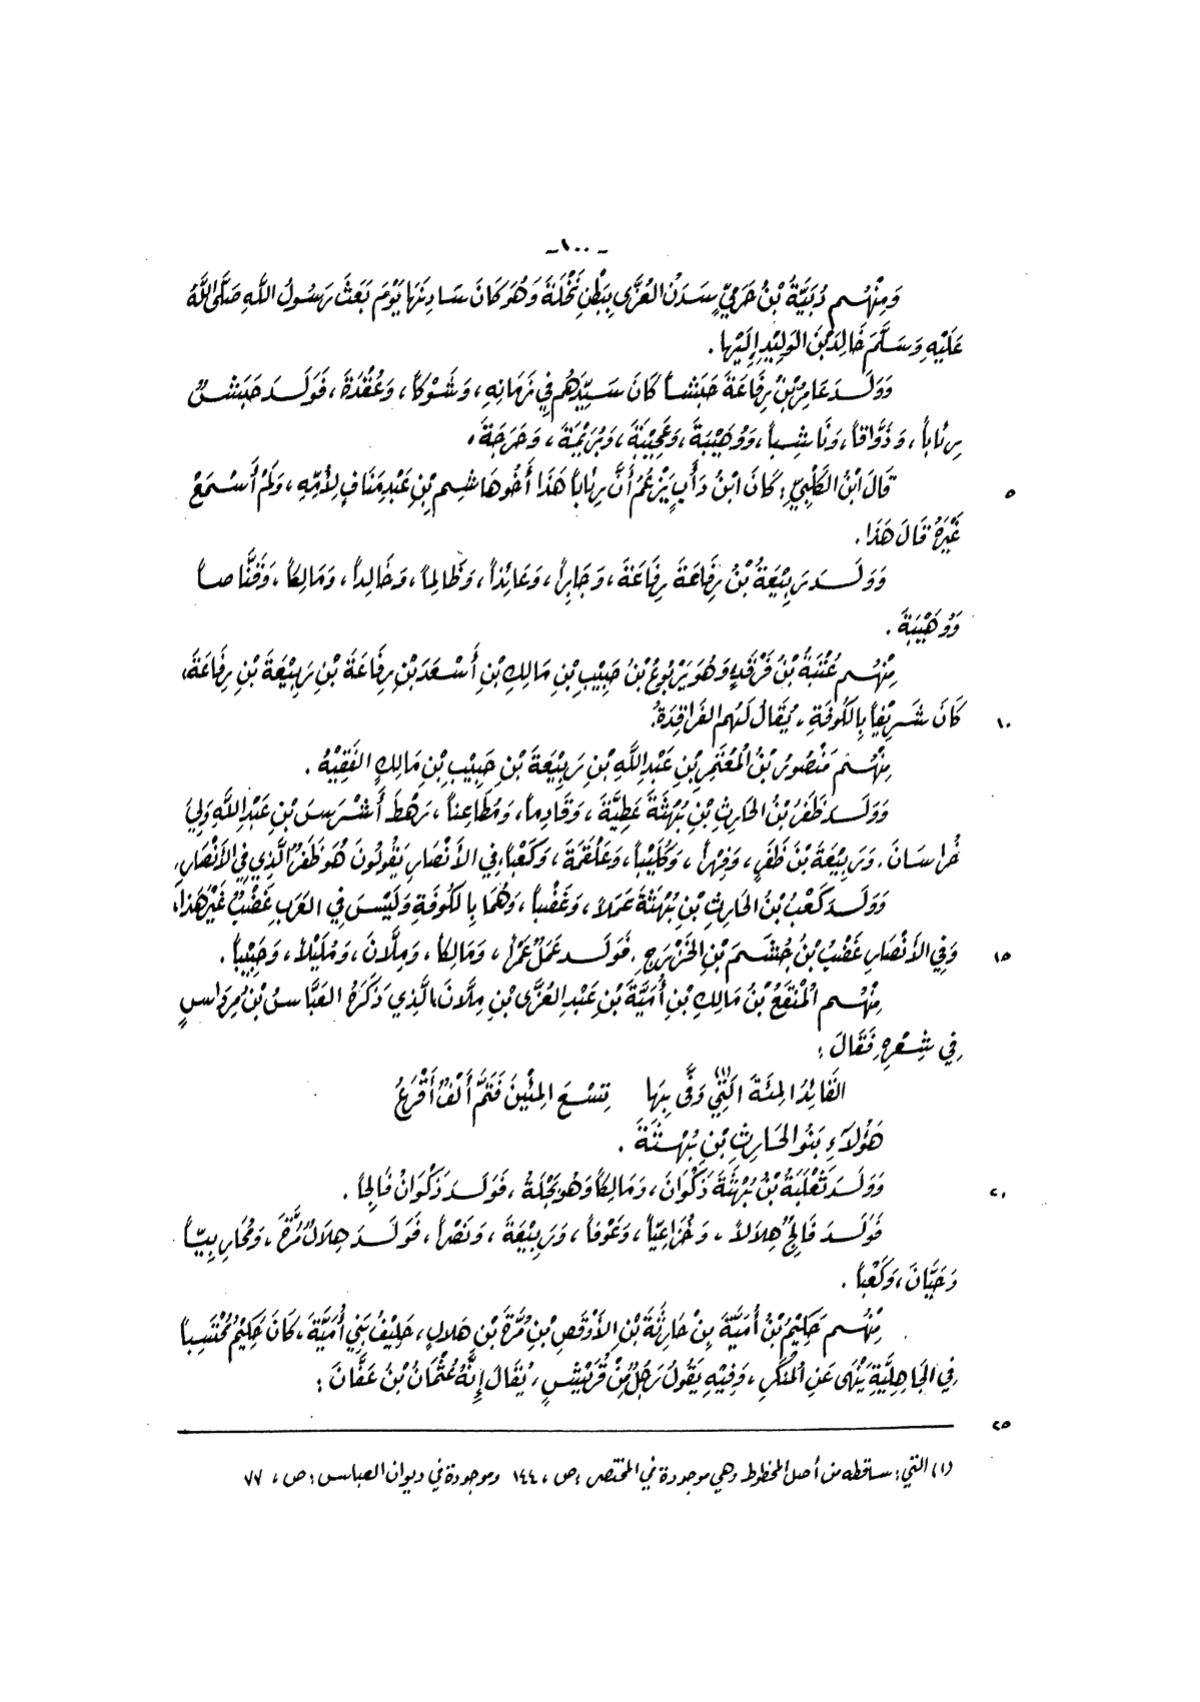 -١٠٠-
وَمِنْهُم دُبَيَّةُ بْنُ حَرَمِيٍّ سَدَنَ العُزَّى بِبَطْنِ نَخْلَةَ وَهُوَ كَانَ سَادِنَهَا يَوْمَ بَعَثَ رَسُولُ اللَّهِ صَلَّى اللَّهُ
عَلَيْهِ وَسَلَّمَ خَالِدَ بْنَ الوَلِيْدِ إِلَيْهَا .
وَوَلَدَ عَامِرُ بْنُ رِفَاعَةَ حَبَشاً كَانَ سَيِّدَهُم فِي زَمَانِهِ، وَشَوْكاً، وَعُقْدَةَ، فَوَلَدَ حَبَشٌ
رِئَاباً، وَذَوَّاقاً، وَنَاشِباً، وَوُهَيْبَةَ، وَعُجَيْبَةَ، وَبُرَيْمَةَ، وَحَرَجَةَ.
قَالَ ابْنُ الكَلْبِيِّ: كَانَ ابْنُ دَأْبٍ يَزْعُمُ أَنَّ رِئَاباً هَذَا أَخُو هَاشِمِ بْنِ عَبْدِ مَنَافٍ لِأُمِّهِ، وَلَمْ أَسْمَعْ ٥
غَيْرَهُ قَالَ هَذَا.
وَوَلَدَ رَبِيْعَةُ بْنُ رِفَاعَةَ رِفَاعَةَ، وَجَابِراً، وَعَائِذاً، وَظَالِماً، وَخَالِداً، وَمَالِكاً، وَقَنَّاصاً
وَوُهَيْبَةَ .
مِنْهُم عُتْبَةُ بْنُ فَرْقَدٍ وَهُوَ يَرْبُوعُ بْنُ حَبِيْبِ بْنِ مَالِكِ بْنِ أَسْعَدَ بْنِ رِفَاعَةَ بْنِ رَبِيْعَةَ بْنِ رِفَاعَةَ،
كَانَ شَرِيْفاً بِالكُوفَةِ، يُقَالُ لَهُم الفَرَاقِدَةُ. ١٠
مِنْهُم مَنْصُورُ بْنُ المُعْتَمِرِ بْنِ عَبْدِ اللَّهِ بْنِ رَبِيْعَةَ بْنِ حَبِيْبِ بْنِ مَالِكٍ الفَقِيْهُ .
وَوَلَدَ ظَفَرُ بْنُ الحَارِثِ بْنِ بُهْثَةَ عَطِيَّةَ، وَقَادِماً، وَمُطَاعِناً، رَهْطَ أَشْرَسَ بْنِ عَبْدِ اللَّهِ وَلِيَ
خُرَاسَانَ. وَرَبِيْعَةَ بْنَ ظَفَرٍ، وَفِهْراً، وَكُلَيْباً، وَعَلْقَمَةَ، وَكَعْباً، فِي الأَنْصَارِ يَقُولُونَ هُوَ ظَفَرٌ الَّذِي فِي الأَنْصَارِ،
وَوَلَدَ كَعْبُ بْنُ الحَارِثِ بْنِ بُهْثَةَ عَمَلاً، وَغَضْباً، وَهُمَا بِالكُوفَةِ وَلَيْسَ فِي العَرَبِ غَضْبٌ غَيْرَ هَذَا،
وَفِي الأَنْصَارِ غَضْبُ بْنُ جُشَمَ بْنِ الخَزْرَجِ. فَوَلَدَ عَمَلٌ عَمْراً، وَمَالِكاً، وَمِلَّانَ، وَمُلَيْلاً، وَحَبِيْباً. ١٥
مِنْهُم المُنَقَّعُ بْنُ مَالِكِ بْنِ أُمَيَّةَ بْنِ عَبْدِ العُزَّى بْنِ مِلَّانَ، الَّذِي ذَكَرَهُ العَبَّاسُ بْنُ مِرْدَاسٍ
فِي شِعْرِهِ فَقَالَ :
القَائِدُ المِئَةَ الَّتِي(١) وَفَّى بِهَا تِسْعَ المِئِيْنَ فَتَمَّ أَلْفٌ أَقْرَعُ
هَؤُلَاءِ بَنُو الحَارِثِ بْنِ بُهْثَةَ .
وَوَلَدَ ثَعْلَبَةُ بْنُ بُهْثَةَ ذَكْوَانَ، وَمَالِكاً وَهُوَ بَجْلَةُ، فَوَلَدَ ذَكْوَانُ فَالِجاً . ٢٠
فَوَلَدَ فَالِجٌ هِلَالاً، وَخُزَاعِيّاً، وَعَوْفاً، وَرَبِيْعَةَ، وَنَصْراً، فَوَلَدَ هِلَالٌ مُرَّةَ، وَمُحَارِبِيّاً
وَحَيَّانَ، وَكَعْباً .
مِنْهُم حَكِيْمُ بْنُ أُمَيَّةَ بِنْ حَارِثَةَ بْنِ الأَوْقَصِ بْنِ مُرَّةَ بْنِ هِلَالٍ، حَلِيْفُ بَنِي أُمَيَّةَ، كَانَ حَكِيْمٌ مُحْتَسِباً
فِي الجَاهِلِيَّةِ يَنْهَى عَنِ المُنْكَرِ، وَفِيْهِ يَقُولُ رَجُلٌ مِنْ قُرَيْشٍ، يُقَالُ إِنَّهُ عُثْمَانُ بْنُ عَفَّانَ :
٢٥
(١) التي: ساقطه من أصل المخطوط وهي موجودة في المختصر : ص، ١٤٤ وموجودة في ديوان العباس : ص، ٧٧